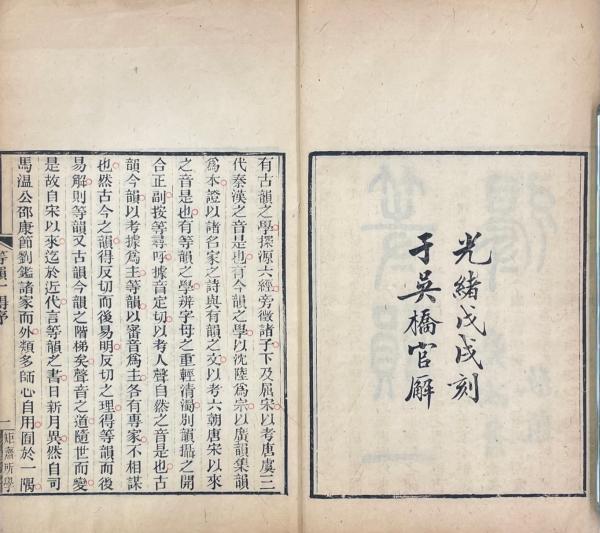 光緒戊戌刻
于吳橋官廨
有古韻之學探源六經旁徵諸子下及屈宋以考唐虞三
代秦漢之音是也有今韻之學以沈陸爲宗以廣韻集韻
爲本證以諸名家之詩與有韻之文以考六朝唐宋以來
之音是也有等韻之學辨字母之重輕清濁別韻攝之開
合正副按等尋呼據音定切以考人聲自然之音是也古
韻今韻以考據爲主等韻以審音爲主各有專家不相謀
也然古今之韻得反切而後易明反切之理得等韻而後
易解則等韻又古韻今韻之階梯矣聲音之道隨世而變
是故自宋以來迄於近代言等韻之書日新月異然自司
馬溫公邵康節劉鑑諸家而外類多師心自用囿於一隅
等韻一得序 一 矩齋所學